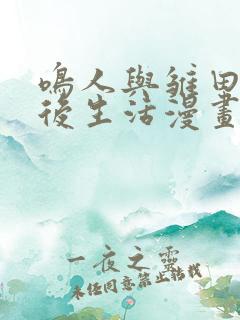 鳴人與雛田
後生活漫畫
一夜之靈
未經同意禁止轉載